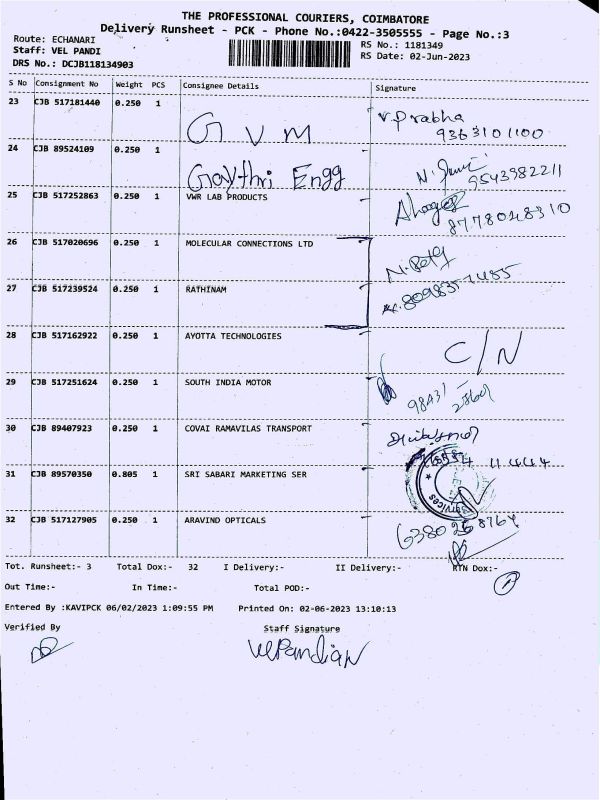 THE PROFESSIONAL COURIERS, COIMBATORE
Delivery Runsheet - PCK - Phone No.:0422-3505555 - Page No.:3
Route: ECHANARI
RS No.: 1181349
Staff: VEL PANDI
RS Date: 02-Jun-2023
DRS No.: DCJB118134903
S No Consignment No Weight PCS Consignee Details Signature
23 CJB 517181440 0.250 1 G V M V. Prabha
9363101100
24 CJB 89524109 0.250 1 Gaythri Engg
9543982211
25 CJB 517252863 0.250 1 VWR LAB PRODUCTS
8778048310
26 CJB 517020696 0.250 1 MOLECULAR CONNECTIONS LTD
27 CJB 517239524 0.250 1 RATHINAM
28 CJB 517162922 0.250 1 AYOTTA TECHNOLOGIES C/N
29 CJB 517251624 0.250 1 SOUTH INDIA MOTOR
30 CJB 89407923 0.250 1 COVAI RAMAVILAS TRANSPORT
31 CJB 89570350 0.805 1 SRI SABARI MARKETING SER
Services
32 CJB 517127905 0.250 1 ARAVIND OPTICALS
Tot. Runsheet:- 3 Total Dox:- 32 I Delivery:- II Delivery:- RTN Dox:-
Out Time:- In Time:- Total POD:-
Entered By :KAVIPCK 06/02/2023 1:09:55 PM Printed On: 02-06-2023 13:10:13
Verified By Staff Signature
VelPandian